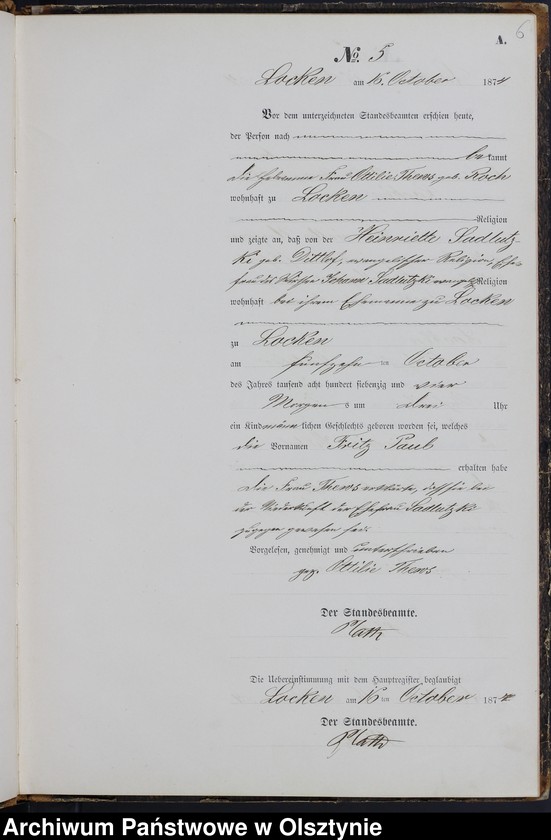 6
A.
No. 5
Locken am 16. October 1874
Vor dem unterzeichneten Standesbeamten erschien heute,
der Person nach
bekannt
die Hebamme Frau Ottilie Thews geb. Koch
wohnhaft zu Locken
Religion
und zeigte an, daß von der Heinriette Sadlutz-
ki geb. Dittloff, evangelischer Religion, Ehe-
frau des Johann Sadlutzki Religion
wohnhaft bei ihrem Ehemanne zu Locken
zu Locken
am fünfzehn ten October
des Jahres tausend acht hundert siebenzig und vier
Morgens um drei Uhr
ein Kind männlichen Geschlechts geboren worden sei, welches
die Vornamen Fritz Paul
erhalten habe
Die Frau Thews erklärte, daß sie bei
der Niederkunft der Ehefrau Sadlutzki
zugegen gewesen sei.
Vorgelesen, genehmigt und unterschrieben
gez. Ottilie Thews
Der Standesbeamte.
Plath
Die Uebereinstimmung mit dem Hauptregister beglaubigt
Locken am 16ten October 1874
Der Standesbeamte.
Plath
Archiwum Państwowe w Olsztynie